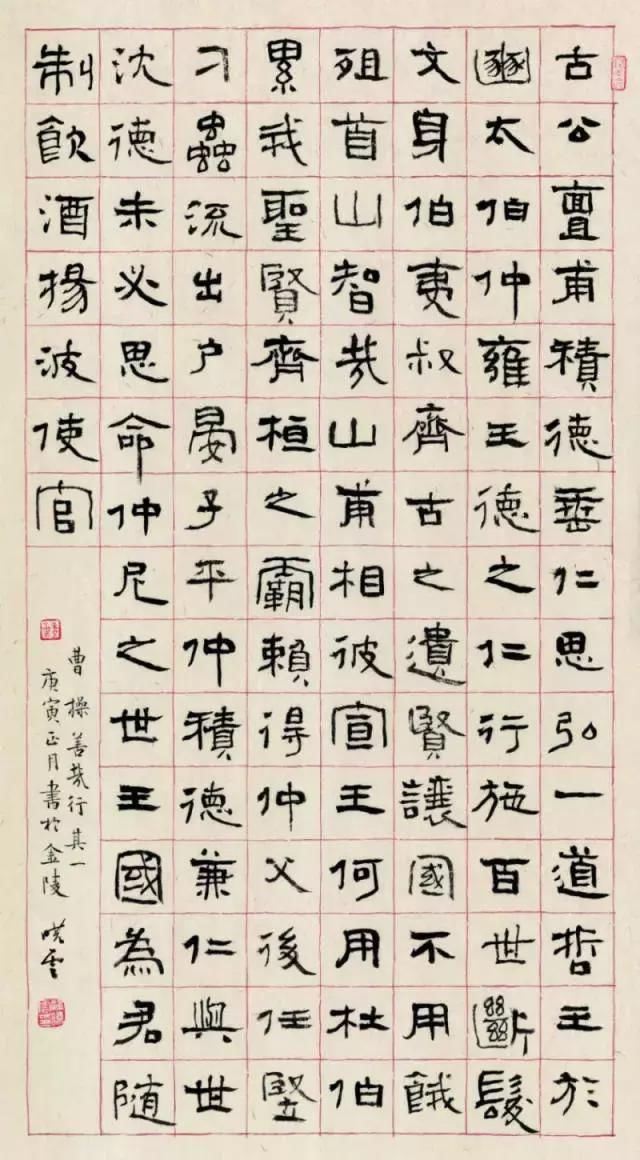 古公亶甫積德垂仁思弘一道哲王於
豳太伯仲雍王德之仁行施百世斷髮
文身伯夷叔齊古之遺賢讓國不用餓
殂首山智哉山甫相彼宣王何用杜伯
累我聖賢齊桓之霸賴得仲父後任竪
刁蟲流出户晏子平仲積德兼仁與世
沈德未必思命仲尼之世王國為君随
制飲酒揚波使官
曹操善哉行其一
庚寅正月書於金陵